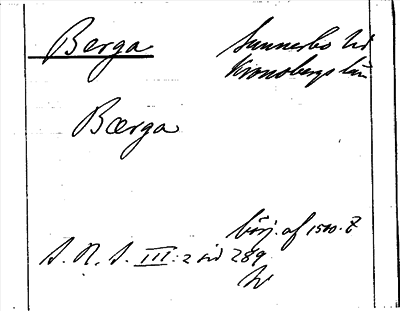 Berga
Sunnerbo hd
Kronobergs län
Bærga
börj. af 1500-t
S. R. S. III: 2 sid 289